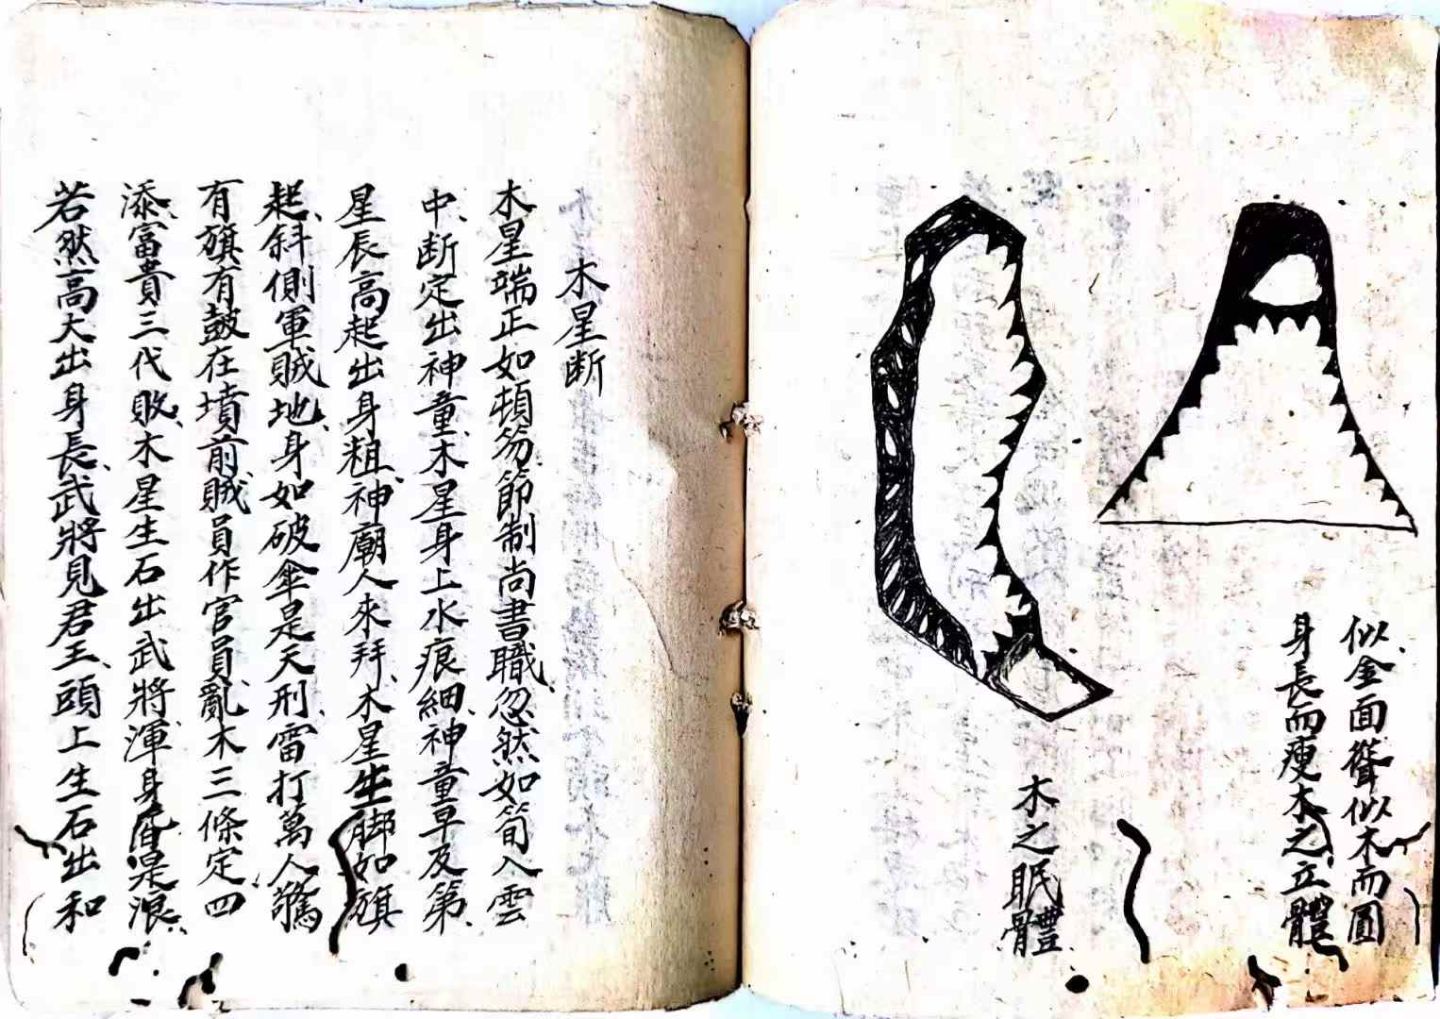 似金面聳似木而圓
身長而瘦木之立體
木之眠體
木星断
木星端正如頓笏節制尚書職忽然如筍入雲
中断定出神童木星身上水痕細神童早及第
星辰高起出身粗神廟人來拜木星生脚如旗
起斜側軍賊地身如破傘是天刑雷打萬人驚
有旗有鼓在墳前賊員作官員亂木三條定四
添富貴三代敗木星生石出武將渾身是浪
若然高大出身長武將見君王頭上生石出和